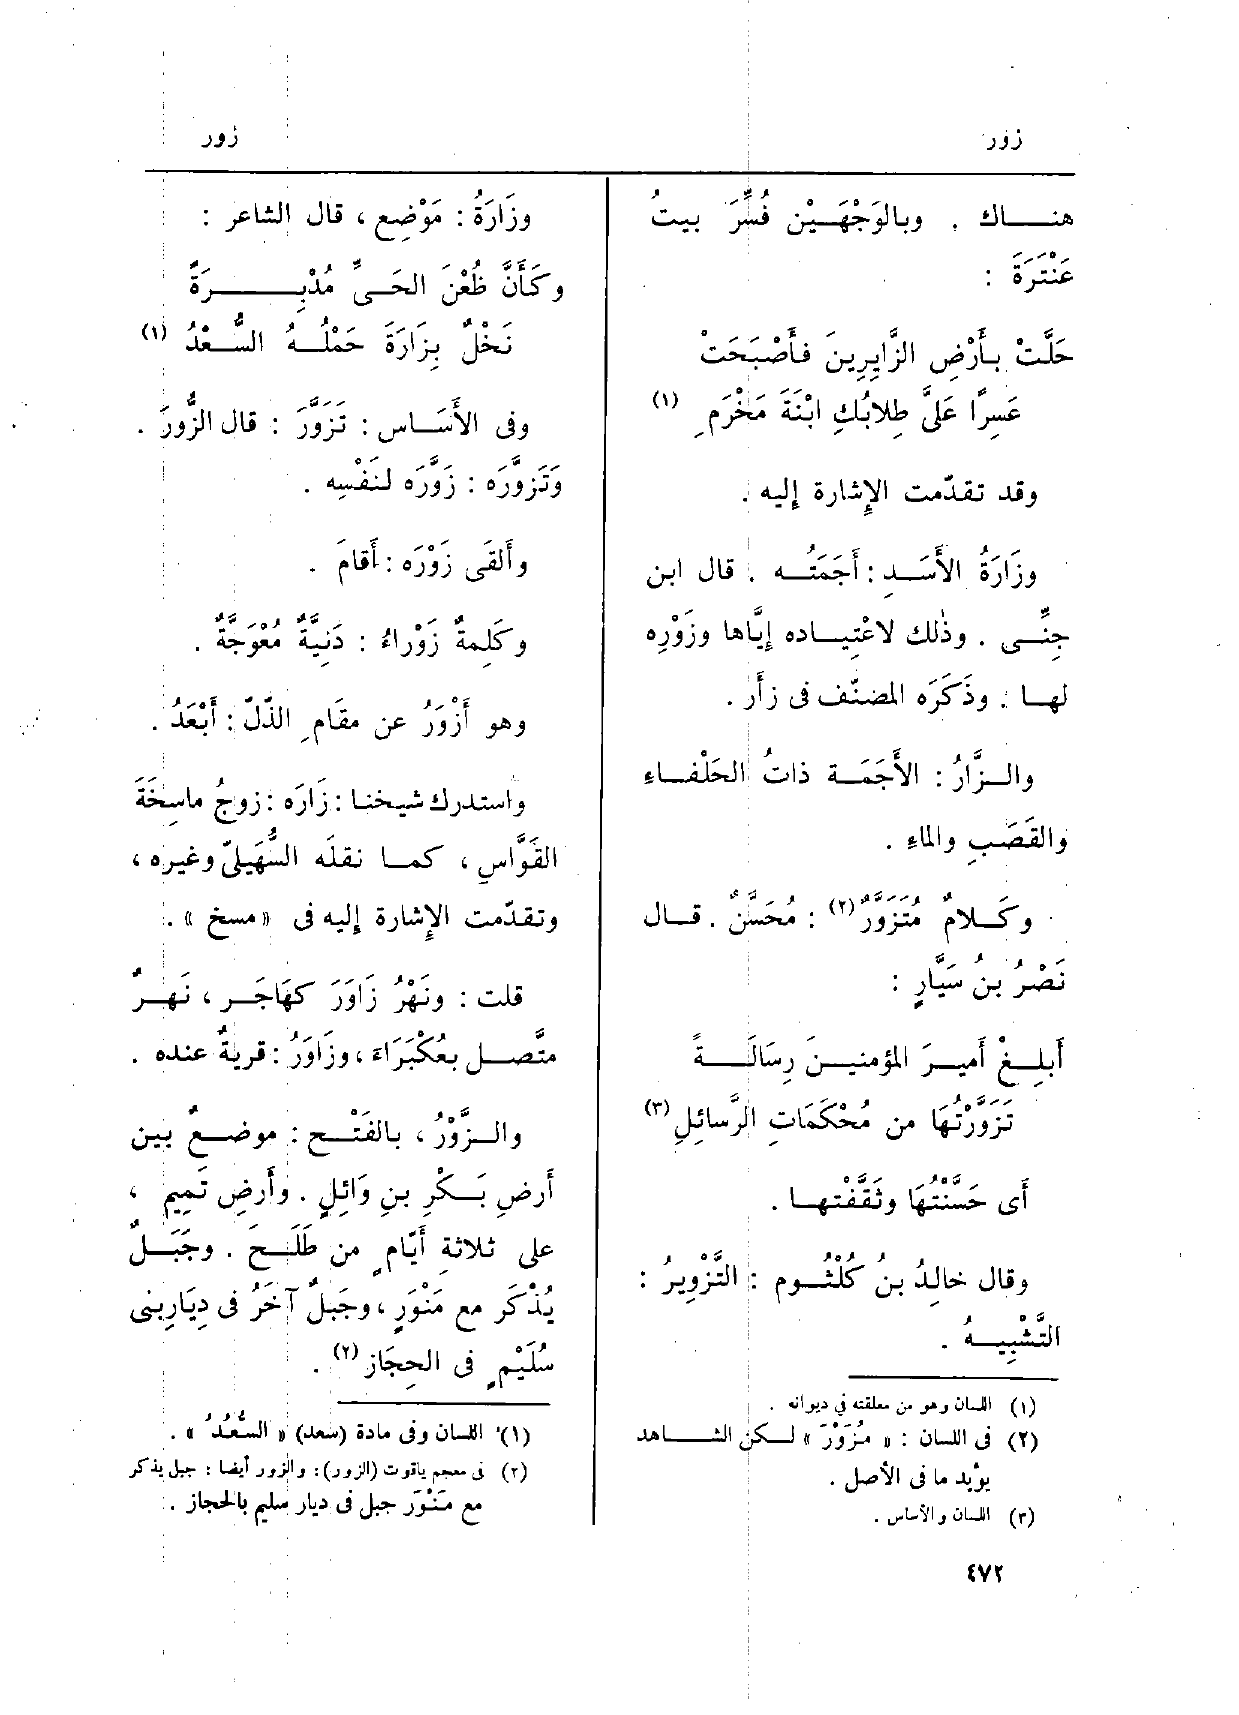 زور
زور
هنــاك . وبالوَجْهَيْن فُسِّرَ بيتُ
عَنْتَرَةَ :
حَلَّتْ بأَرْضِ الزَّايِرِينَ فأَصْبَحَتْ
عَسِرًا عَلَىَّ طِلابُكِ ابْنَةَ مَخْرَمِ (١)
وقد تقدّمت الإشارة إليه .
وزَارَةُ الأَسَـدِ : أَجَمَتُـه . قال ابن
جِنِّـى . وذٰلك لاعْتِيـاده إيَّاها وزَوْرِه
لهـا . وذَكَرَه المصنّف فى زأَر .
والـزَّارُ : الأَجَمَـة ذاتُ الحَلْفـاءِ
والقَصَبِ والماءِ .
وكَـلامٌ مُتَزَوَّرٌ (٢) : مُحَسَّنٌ . قـال
نَصْرُ بنُ سَيَّارٍ :
أَبلِـغْ أَميـرَ المؤمنيـنَ رِسَالَـةً
تَزَوَّرْتُهَا من مُحْكَمَاتِ الرَّسائِلِ (٣)
أى حَسَّنْتُهَا وثَقَّفْتهـا .
وقال خالِدُ بنُ كُلْثُـوم : التَّزْوِيرُ :
التَّشْبِيـهُ .
(١) اللسان وهو من معلقته في ديوانه .
(٢) فى اللسان : « مُزَوَّرٌ » لـكن الشـاهد
يؤيد ما فى الأصل .
(٣) اللسان والأساس .
٤٧٢
وزَارَةُ : مَوْضِع ، قال الشاعر :
وكَأَنَّ ظُعْنَ الحَـىِّ مُدْبِـرَةً
نَخْلٌ بِزَارَةَ حَمْلُـهُ السُّعْدُ (١)
وفى الأَسَـاس : تَزَوَّرَ : قال الزُّورَ .
وَتَزوَّرَه : زَوَّرَه لنَفْسِه .
وأَلقَى زَوْرَه : أَقامَ .
وكَلِمةٌ زَوْراءُ : دَنِيَّةٌ مُعْوَجَّةٌ .
وهو أَزْوَرُ عن مقَامِ الذّلّ : أَبْعَدُ .
واستدرك شيخنا : زَارَه : زوجُ ماسِخَةَ
القَوَّاسِ ، كمـا نقلَه السُّهَيلىّ وغيره ،
وتقدّمت الإشارة إليه فى « مسخ » .
قلت : ونَهْرُ زَاوَرَ كهَاجَـر ، نَهـرٌ
متَّصـل بعُكْبَرَاءَ ، وزَاوَرُ : قريةٌ عنده .
والـزَّوْرُ ، بالفَتْـح : موضـعٌ بين
أرضِ بَـكْرِ بنِ وَائِلٍ . وأَرضِ تَمِيمٍ ،
على ثلاثةِ أَيّامٍ من طَلَـحَ . وجَبَـلٌ
يُذْكَر مع مَنْوَرٍ ، وجَبلٌ آخَرُ فى دِيَارِبنى
سُلَيْمٍ فى الحِجَاز (٢) .
(١) اللسان وفى مادة (سعد) « السُّعُدُ » .
(٢) فى معجم ياقوت (الزور) : والزور أيضا : جبل يذكر
مع مَنْوَر جبل فى ديار سليم بالحجاز .